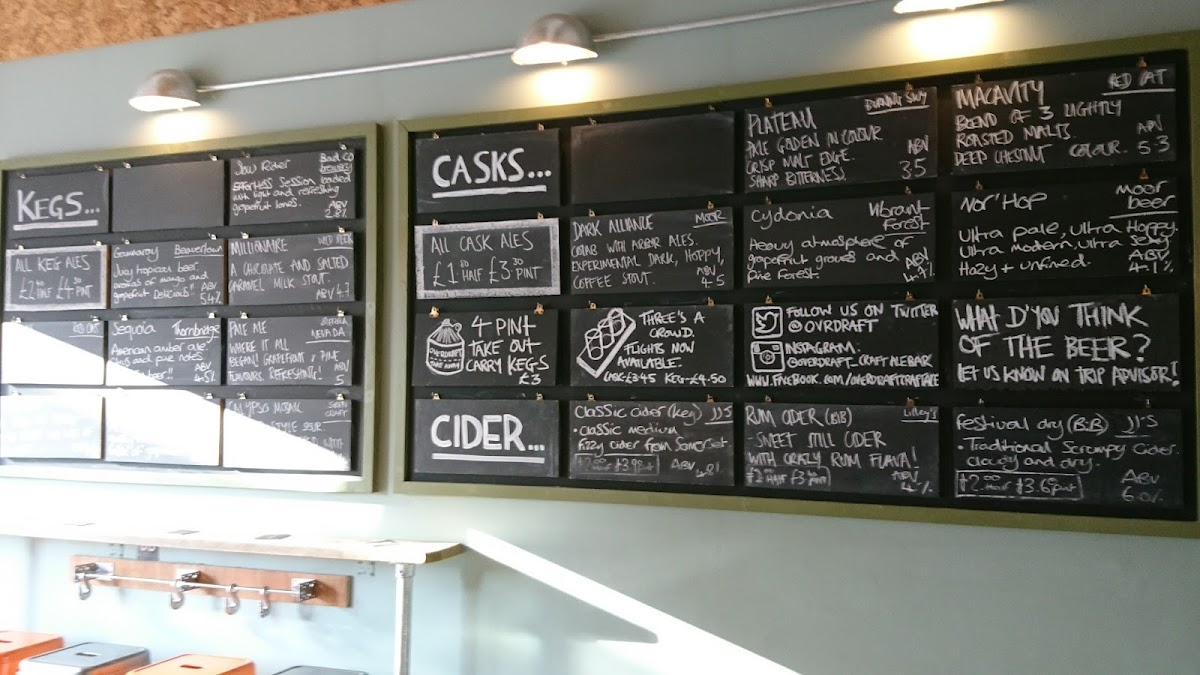 KEGS...
Slow Rider
Bad Co
brewery
Effortless Session loaded
with light and refreshing
grapefruit tones.
ABV
2.8%
ALL KEG ALES
HALF £4 PINT
Gammaray
Beavertown
Juicy tropical beer
of mango and
grapefruit Delicious!!
ABV
5.4%
MILLIONAIRE
WILD BEER
A CHOCOLATE AND SALTED
CARAMEL MILK STOUT.
ABV 4.7
Sequoia
Thornbridge
American amber ale
and pine notes
ABV
4.5%
PALE ME
SIERRA
NEVADA
WHERE IT ALL
BEGAN! GRAPEFRUIT & PINE
FLAVOURS. REFRESHING!
ABV
5
MOSAIC
STYLE SOUR
WITH
CASKS...
PLATEAU
BURNING SKY
PALE GOLDEN IN COLOUR
CRISP MALT EDGE.
SHARP BITTERNESS
ABV
3.5
MACAVITY
RED CAT
BLEND OF 3 LIGHTLY
ROASTED MALTS.
DEEP CHESTNUT COLOUR.
ABV
5.3
ALL CASK ALES
HALF £3.30 PINT
DARK ALLIANCE
MOOR
COLLAB WITH ARBOR ALES.
EXPERIMENTAL DARK, HOPPY,
COFFEE STOUT.
ABV
4.5
Cydonia
Vibrant
Forest
Heavy atmosphere of
grapefruit groves and
Pine Forest
ABV
4.7%
Nor'Hop
Moor
beer
Ultra pale, ultra Hoppy.
Ultra modern, ultra Sexy
Hazy + unfined.
ABV
4.1%
OVERDRAFT
4 PINT
TAKE OUT
CARRY KEGS
£3
THREE'S A
CROWD.
FLIGHTS NOW
AVAILABLE.
CASK-£3.45 KEG-£4.50
FOLLOW US ON TWITTER
@OVRDRAFT
INSTAGRAM:
@OVERDRAFT_CRAFTALEBAR
WWW.FACEBOOK.COM/OVERDRAFTCRAFTALE
WHAT D'YOU THINK
OF THE BEER?
LET US KNOW ON TRIP ADVISOR!
CIDER...
Classic cider (Keg) JJ'S
• Classic medium
fizzy cider from Somerset.
ABV
RUM CIDER (BIB)
Lilley's
- SWEET STILL CIDER
WITH CRAZY RUM FLAVA!
HALF
PINT
ABV
4%
Festival dry (BIB) JJ'S
• Traditional Scrumpy Cider.
cloudy and dry.
£2.00 HALF £3.60 PINT
ABV
6.0%